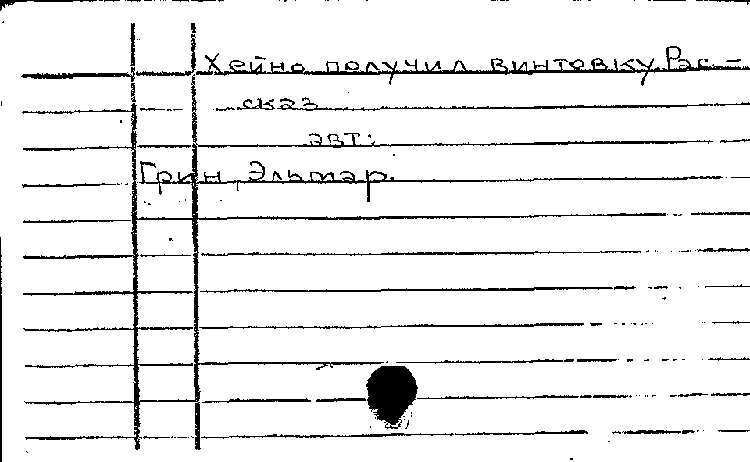 Хейно получил винтовку. Рас-
сказ
авт:
Грин, Эльмар.